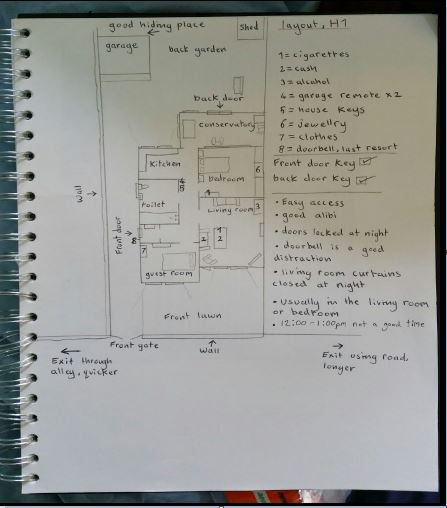 layout, H1
good hiding place
Shed
garage
back garden
1= cigarettes
2= cash
3= alcohol
4= garage remote x2
5= house keys
6= jewellery
7= clothes
8= doorbell, last resort
Front door key ☑
back door key ☑
back door
conservatory
Kitchen
5
4
bedroom
6
Wall
toilet
4
Living room
3
Front door
8
7
2
1
2
guest room
Front lawn
• Easy access
• good alibi
• doors locked at night
• doorbell is a good
distraction
• living room curtains
closed at night
• Usually in the living room
or bedroom
• 12:00 - 1:00pm not a good time
Front gate
Wall
Exit through
alley, quicker
Exit using road,
longer